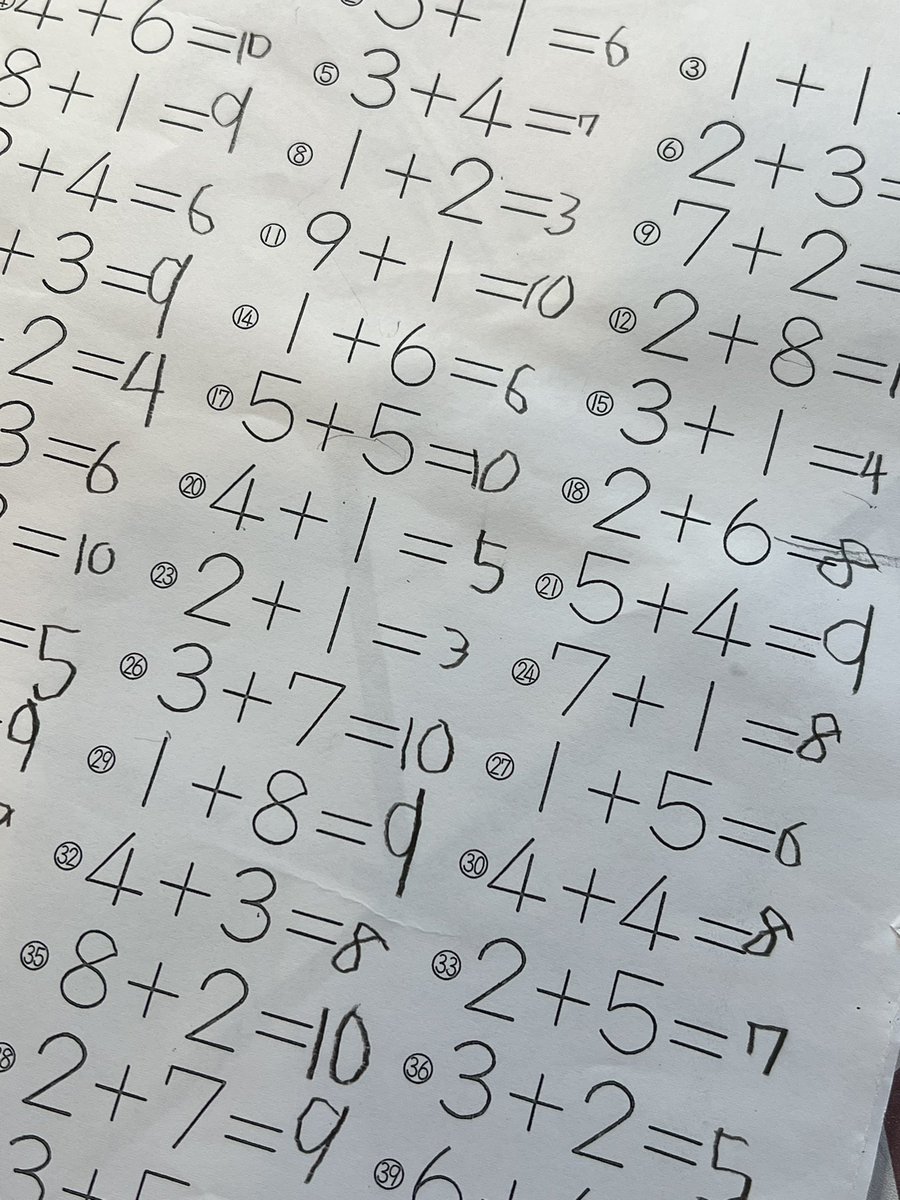 5+1=6 ③ 1+1
4+6=10 ⑤ 3+4=7 ⑥ 2+3=
8+1=9 ⑧ 1+2=3 ⑨ 7+2=
+4=6 ⑪ 9+1=10 ⑫ 2+8=1
+3=9 ⑭ 1+6=6 ⑮ 3+1=4
2=4 ⑰ 5+5=10 ⑱ 2+6=8
3=6 ⑳ 4+1=5 ㉑ 5+4=9
=10 ㉓ 2+1=3 ㉔ 7+1=8
=5 ㉖ 3+7=10 ㉗ 1+5=6
9 ㉙ 1+8=9 ㉚ 4+4=8
㉜ 4+3=8 ㉝ 2+5=7
㉟ 8+2=10 ㊱ 3+2=5
2+7=9 ㊴ 6+
3+5